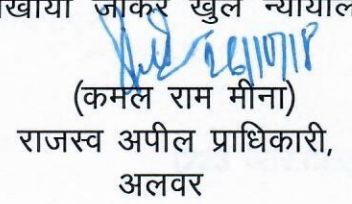 खाया जाकर खुले न्यायाल
26/10/18
(कमल राम मीना)
राजस्व अपील प्राधिकारी,
अलवर